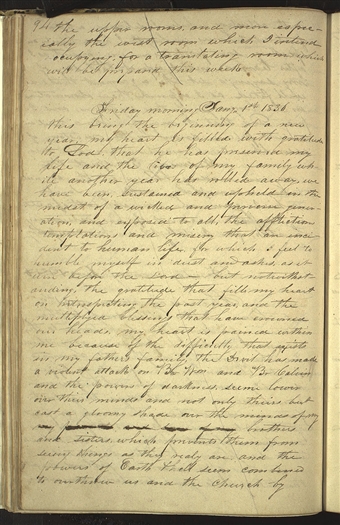 94 the upper rooms, and more espec-
ially the west room which I intend
occupying for a translating room which
will be prepared this week.
Friday morning Jany. 1st 1836
this being the beginning of a new
year, my heart is filled with gratitude
to God, that he has preserved my
life and the lives of my family wh-
ile another year has rolled away, we
have been sustained and upheld in the
midst of a wicked and perverse gener-
ation, and exposed to all, the afflictions
temptations and misery that are inci-
dent to human life, for which I feel to
humble myself in dust and ashes, as it
were before the Lord — but notwithst-
anding, the gratitude that fills my heart
on retrospecting the past year, and the
multiplyed blessings that have crowned
our heads, my heart is pained within
me because of the difficulty that exists
in my fathers family, the Devil has made
a violent attack on Br. Wm and Br Calvin
and the powers of darkness, seem lower
over their minds and not only theirs but
cast a gloomy shade over the minds of my
brothers
and sisters, which prevents them from
seeing things as they realy are, and the
powers of Earth & hell seem combined
to overthrow us and the Church by